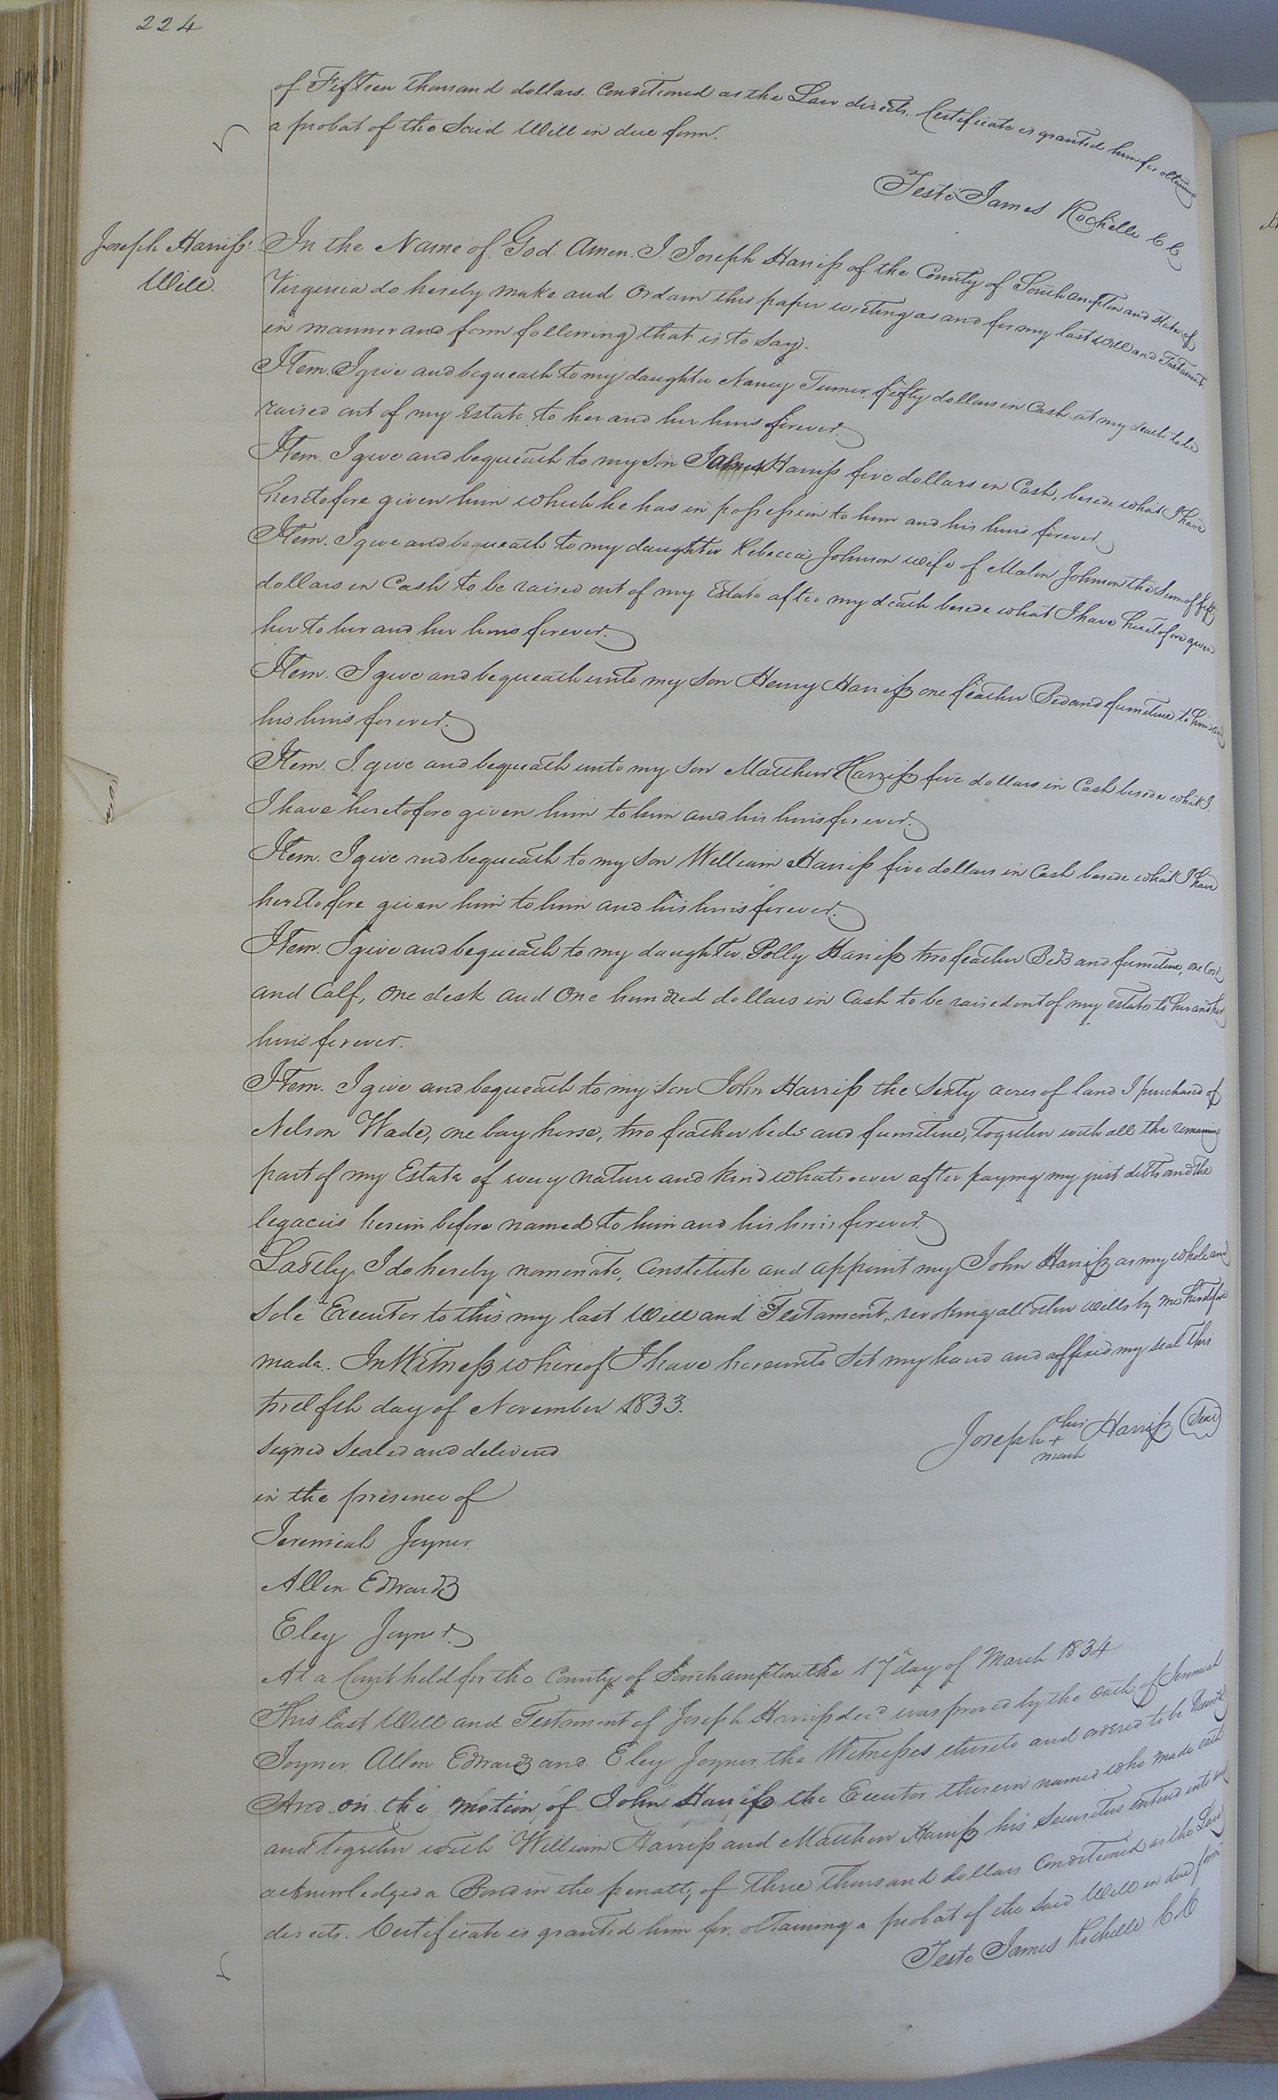 224
of Fifteen thousand dollars. Conditioned as the Law directs. Certificate is granted him for obtaining
a probat of the Said Will in due form.
Teste James Rochelle C C
Joseph Harriss'
Will.
In the Name of God. Amen. I. Joseph Harriss of the County of Southampton and State of
Virginia do hereby make and Ordain this paper writing as and for my last will and Testament
in manner and form following that is to say.
Item. I give and bequeath to my daughter Nancy Turner fifty dollars in Cash at my death to be
raised out of my Estate, to her and her heirs forever.
Item. I give and bequeath to my son Harriss five dollars in Cash, beside what I have
heretofore given him which he has in possession to him and his heirs forever
Item. I give and bequeath to my daughter Rebecca Johnson wife of Malon Johnson the Sum of fifty
dollars in Cash to be raised out of my Estate after my death beside what I have heretofore given
her to her and her heirs forever.
Item. I give and bequeath unto my son Henry Harriss one feather Bed and furniture to him and
his heirs forever.
Item. I give and bequeath unto my son Matthew Harriss five dollars in Cash beside what I.
I have heretofore given him to him and his heirs forever.
Item. I give and bequeath to my son William Harriss five dollars in Cash beside what I have
heretofore given him to him and his heirs forever.
Item. I give and bequeath to my daughter Polly Harriss two feather Beds and furniture, one Cow
and Calf, one desk and One hundred dollars in Cash to be raised out of my estate to her and her
heirs forever.
Item. I give and bequeath to my son John Harriss the Sixty acres of land I purchased of
Nelson Wade, one bay horse, two feather beds and furniture, together with all the remaining
part of my Estate of every nature and kind whatsoever after paying my just debts and the
legacies herein before named to him and his heirs forever.
Lastly I do hereby nominate, Constitute and appoint my John Harriss as my whole and
Sole Executor to this my last Will and Testament, revoking all other wills by me heretofore
made. In Witness whereof I have hereunto Set my hand and affixed my seal this
twelfth day of November 1833.
Joseph his + mark Harriss Seal
Signed Sealed and delivered
in the presence of
Jeremiah Joyner
Allen Edwards
Eley Joyner
At a Court held for the County of Southampton the 17th day of March 1834
This last Will and Testament of Joseph Harriss decd was proved by the oath of Jeremiah
Joyner Allen Edwards and Eley Joyner the Witnesses thereto and ordered to be Recorded
And on the motion of John Harriss the Executor therein named who made oath
and together with William Harriss and Matthew Harriss his Securities entered into and
acknowledged a Bond in the penalty of three thousand dollars Conditioned as the Law
directs. Certificate is granted him for obtaining a probat of the Said Will in due form
Teste James Rochelle C C